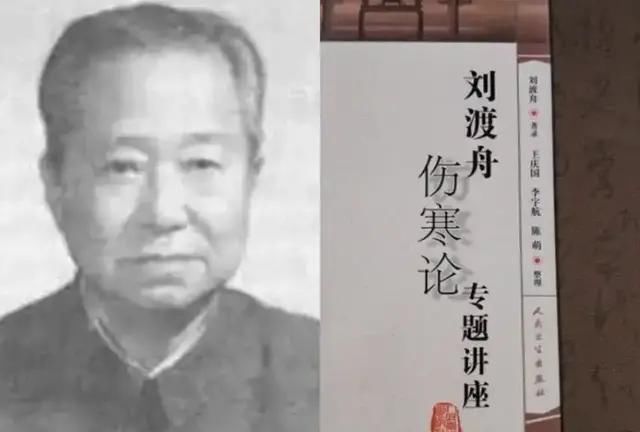 刘渡舟
伤寒论
专题讲座
刘渡舟 著录
王庆国 李宇航 陈萌 整理
人民卫生出版社